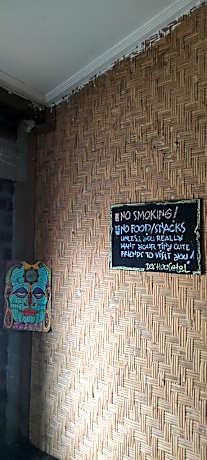 NO SMOKING!
NO FOOD/SNACKS
UNLESS YOU REALLY
WANT YOUR TINY CUTE
FRIENDS TO VISIT YOU!